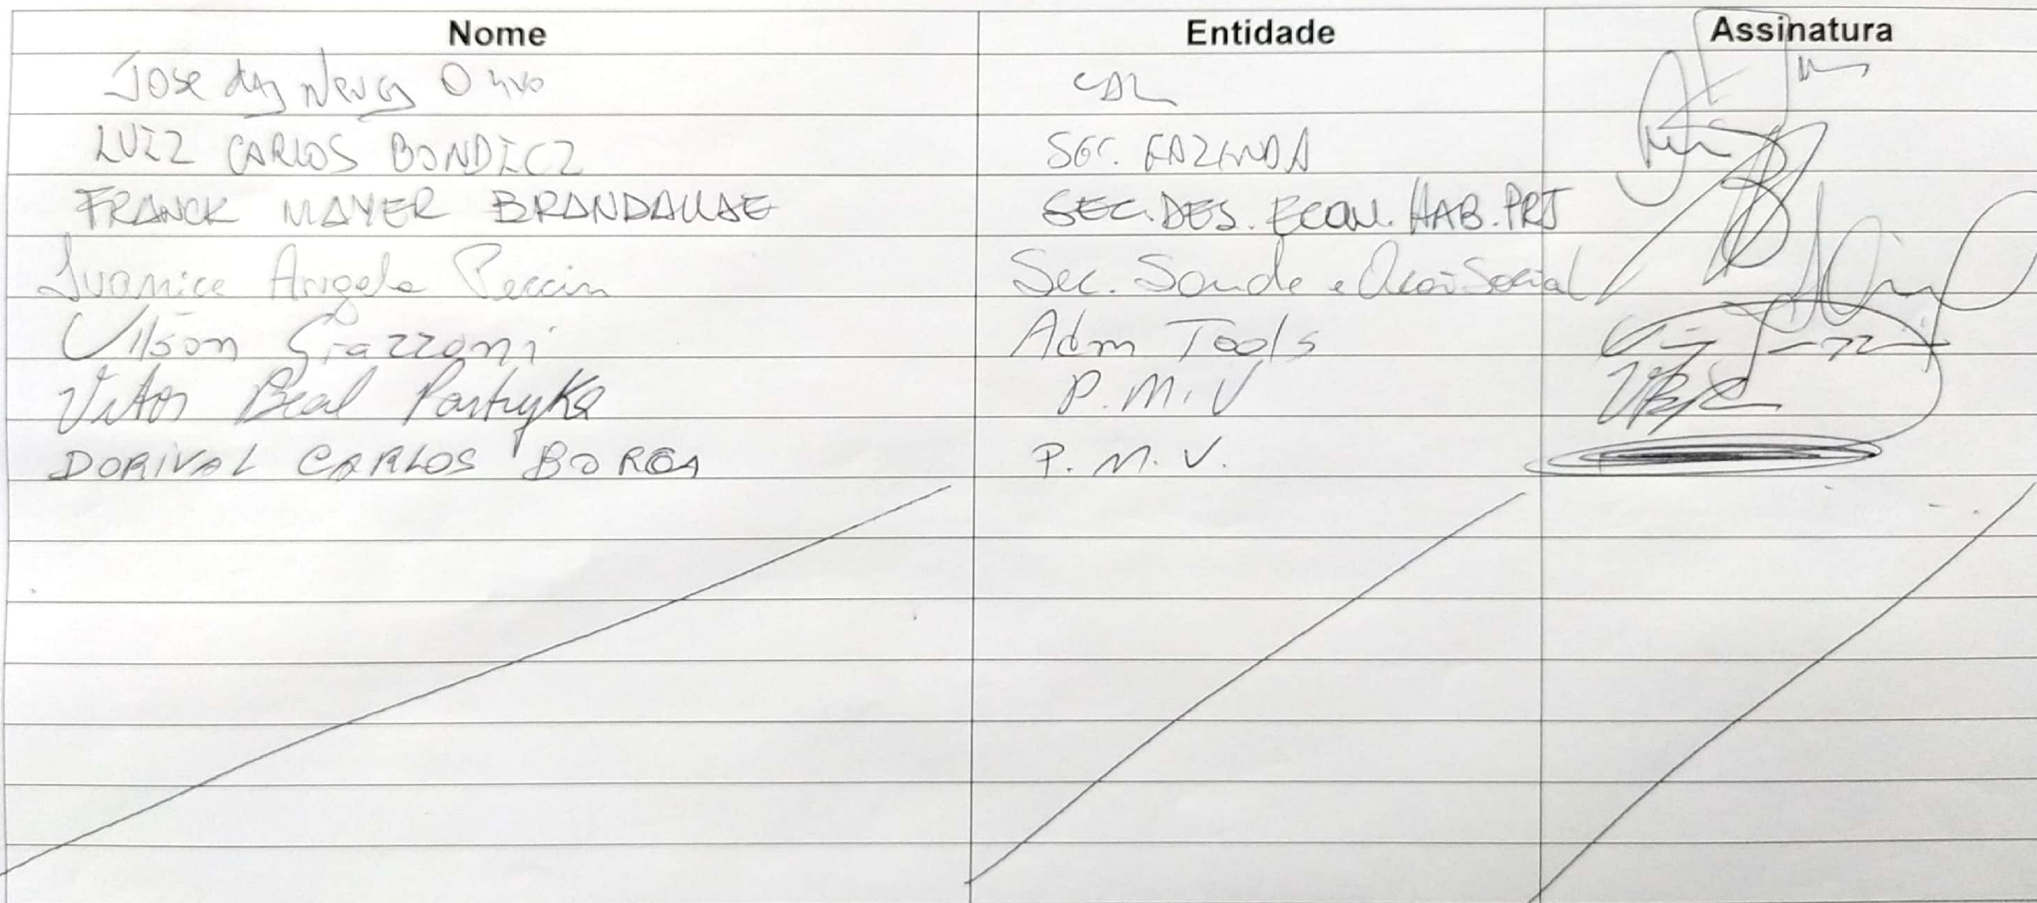 Nome Entidade Assinatura
Jose das Neves
LUIZ CARLOS BONDICZ SEC. FAZENDA
FRANCK MAYER BRANDALISE SEC. DES. ECON. HAB. PRJ
Ivanice Angela Peccin Sec. Saude e Social
Vilson Grazzoni Adm Tools
Vitor Beal Pastryka P.M.V
DORIVAL CARLOS BORGA P.M.V.